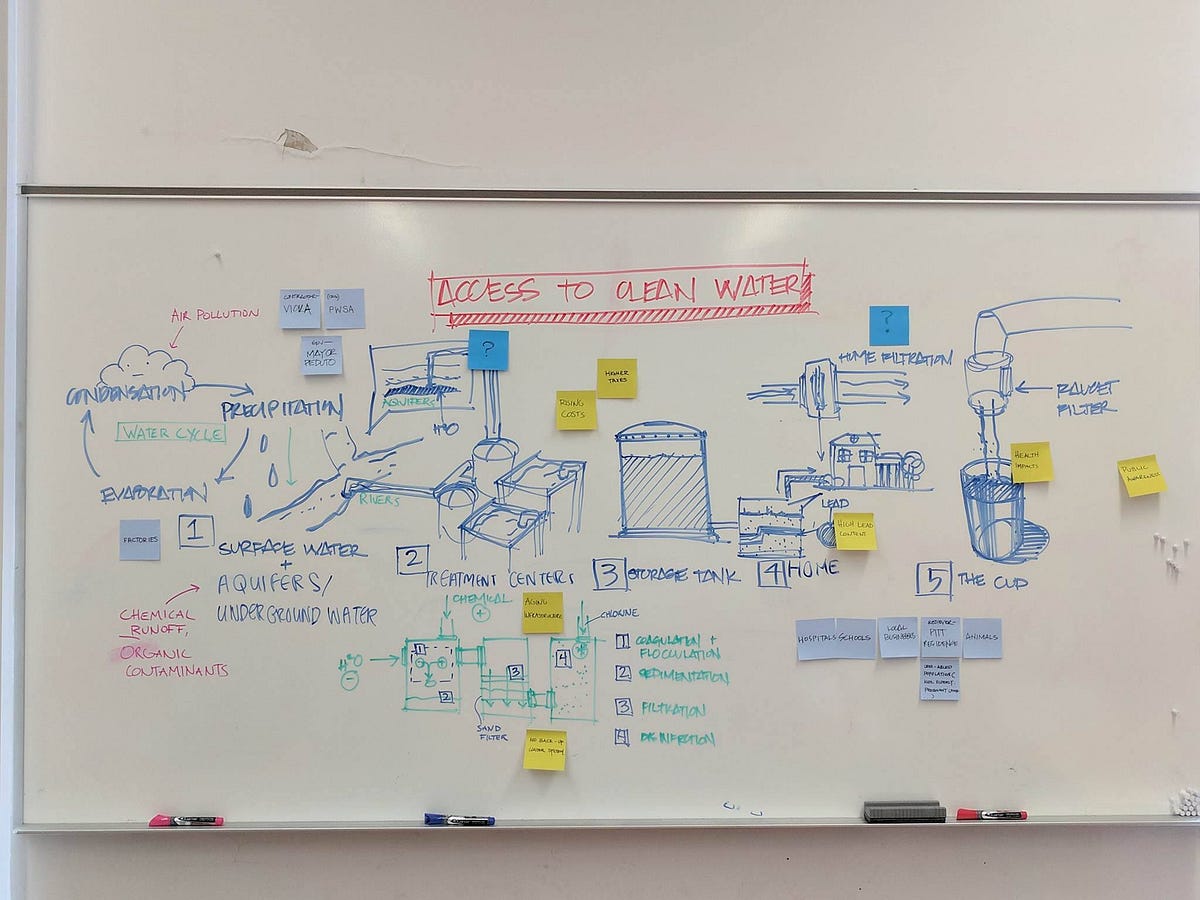 ACCESS TO CLEAN WATER
AIR POLLUTION
VIOLA
PWSA
GOV-
MAYOR
PEDUTO
CONDENSATION
PRECIPITATION
WATER CYCLE
EVAPORATION
FACTORIES
1
SURFACE WATER
+
AQUIFERS/
UNDERGROUND WATER
CHEMICAL
RUNOFF,
ORGANIC
CONTAMINANTS
AQUIFERS
H²O
RIVERS
?
2
TREATMENT CENTERS
RISING
COSTS
HIGHER
TAXES
3
STORAGE TANK
?
HOME FILTRATION
LEAD
HIGH LEAD
CONTENT
4
HOME
FAUCET
FILTER
HEALTH
IMPACTS
PUBLIC
AWARENESS
5
THE CUP
CHEMICAL
+
AGING
INFRASTRUCTURE
CHLORINE
H²O
1
2
3
4
SAND
FILTER
NO BACK-UP
WATER SYSTEM
1 COAGULATION +
FLOCCULATION
2 SEDIMENTATION
3 FILTRATION
4 DISINFECTION
HOSPITALS
SCHOOLS
LOCAL
BUSINESSES
PITT
RESIDENCE
ANIMALS